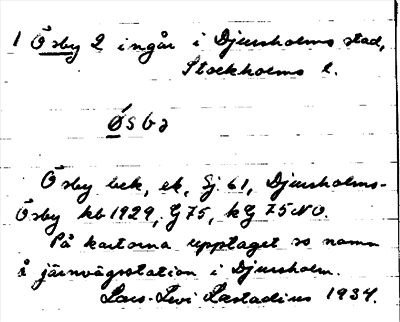 1 Ösby 2 ingår i Djursholms stad,
Stockholms l.
Ösbə
Ösby bek, ek, Gj. 61, Djursholms-
Ösby kb 1929, G 75, kG 75 NO.
På kartorna upptaget ss namn
å järnvägsstation i Djursholm.
Lars-Levi Læstadius 1934.